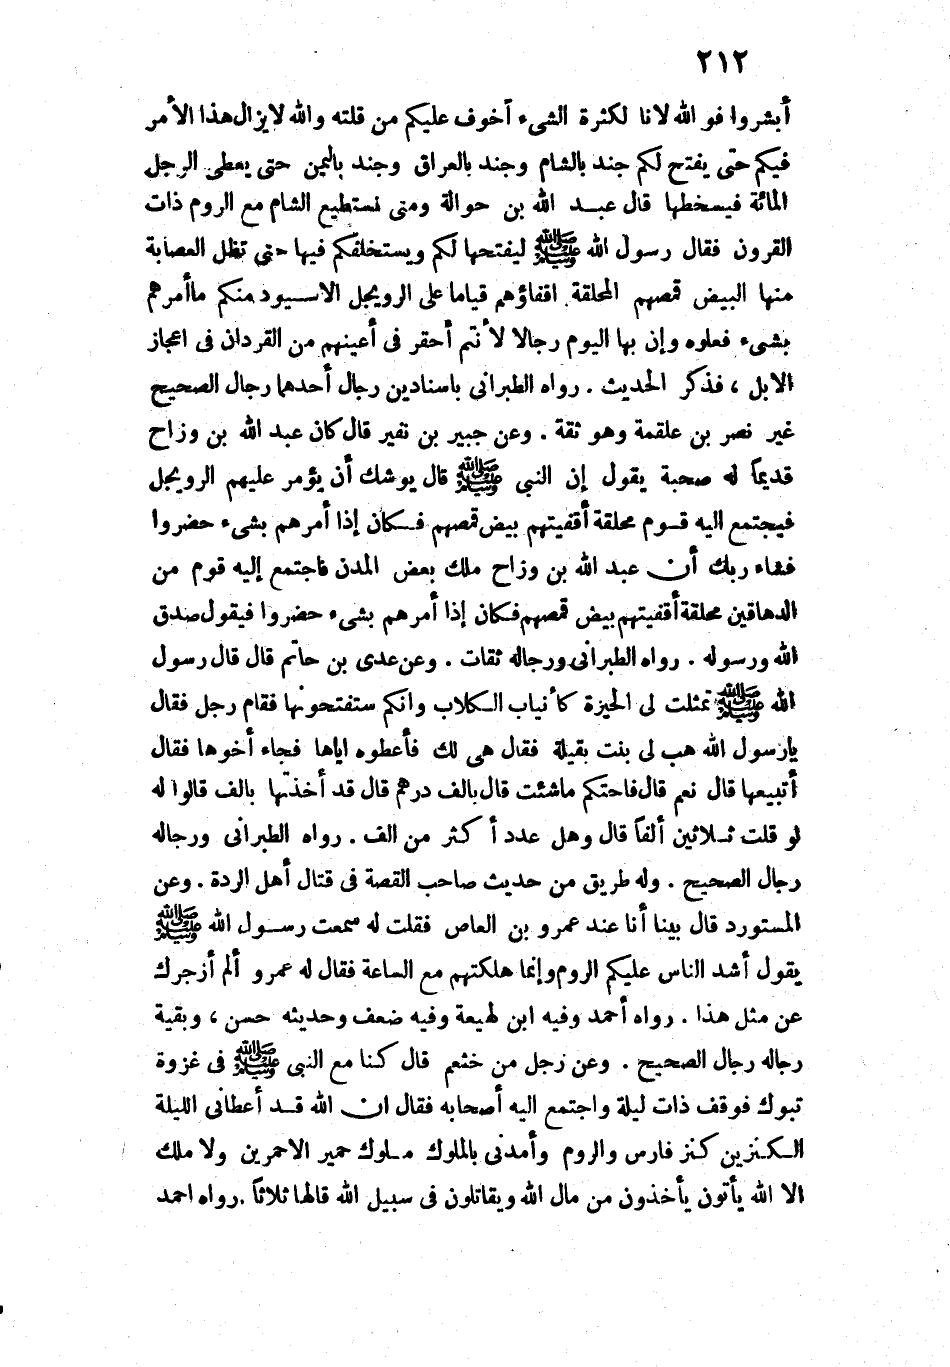 ٢١٢
أبشروا فو الله لانا لكثرة الشىء أخوف عليكم من قلته والله لايزال هذا الأمر
فيكم حتى يفتح لكم جند بالشام وجند بالعراق وجند باليمن حتى يعطى الرجل
المائة فيسخطها قال عبد الله بن حوالة ومنى نستطيع الشام مع الروم ذات
القرون فقال رسول الله ﷺ ليفتحها لكم ويستخلفكم فيها حتى تظل العصابة
منها البيض قمصهم المحلقة اقفاؤهم قياما على الرويجل الاسيود منكم ماأمرهم
بشىء فعلوه وإن بها اليوم رجالا لأنتم أحقر فى أعينهم من القردان فى اعجاز
الابل ، فذكر الحديث . رواه الطبرانى باسنادين رجال أحدهما رجال الصحيح
غير نصر بن علقمة وهو ثقة . وعن جبير بن نفير قال كان عبد الله بن وزاح
قديماً له صحبة يقول إن النبى ﷺ قال يوشك أن يؤمر عليهم الرويجل
فيجتمع اليه قوم محلقة أقفيتهم بيض قمصهم فكان إذا أمرهم بشىء حضروا
فشاء ربك أن عبد الله بن وزاح ملك بعض المدن فاجتمع إليه قوم من
الدهاقين محلقة أقفيتهم بيض قمصهم فكان إذا أمرهم بشىء حضروا فيقول صدق
الله ورسوله . رواه الطبرانى ورجاله ثقات . وعن عدى بن حاتم قال قال رسول
الله ﷺ تمثلت لى الحيزة كأنياب الكلاب وانكم ستفتحونها فقام رجل فقال
يارسول الله هب لى بنت بقيلة فقال هى لك فأعطوه اياها فجاء أخوها فقال
أتبيعها قال نعم قال فاحتكم ماشئت قال بالف درهم قال قد أخذتها بالف قالوا له
لو قلت ثلاثين ألفاً قال وهل عدد أكثر من الف . رواه الطبرانى ورجاله
رجال الصحيح . وله طريق من حديث صاحب القصة فى قتال أهل الردة . وعن
المستورد قال بينا أنا عند عمرو بن العاص فقلت له سمعت رسول الله ﷺ
يقول أشد الناس عليكم الروم وإنما هلكتهم مع الساعة فقال له عمرو ألم أزجرك
عن مثل هذا . رواه أحمد وفيه ابن لهيعة وفيه ضعف وحديثه حسن ، وبقية
رجاله رجال الصحيح . وعن رجل من خثعم قال كنا مع النبى ﷺ فى غزوة
تبوك فوقف ذات ليلة واجتمع اليه أصحابه فقال ان الله قد أعطانى الليلة
الكنزين كنز فارس والروم وأمدنى بالملوك ملوك حمير الاحمرين ولا ملك
الا الله يأتون يأخذون من مال الله ويقاتلون فى سبيل الله قالها ثلاثاً . رواه احمد